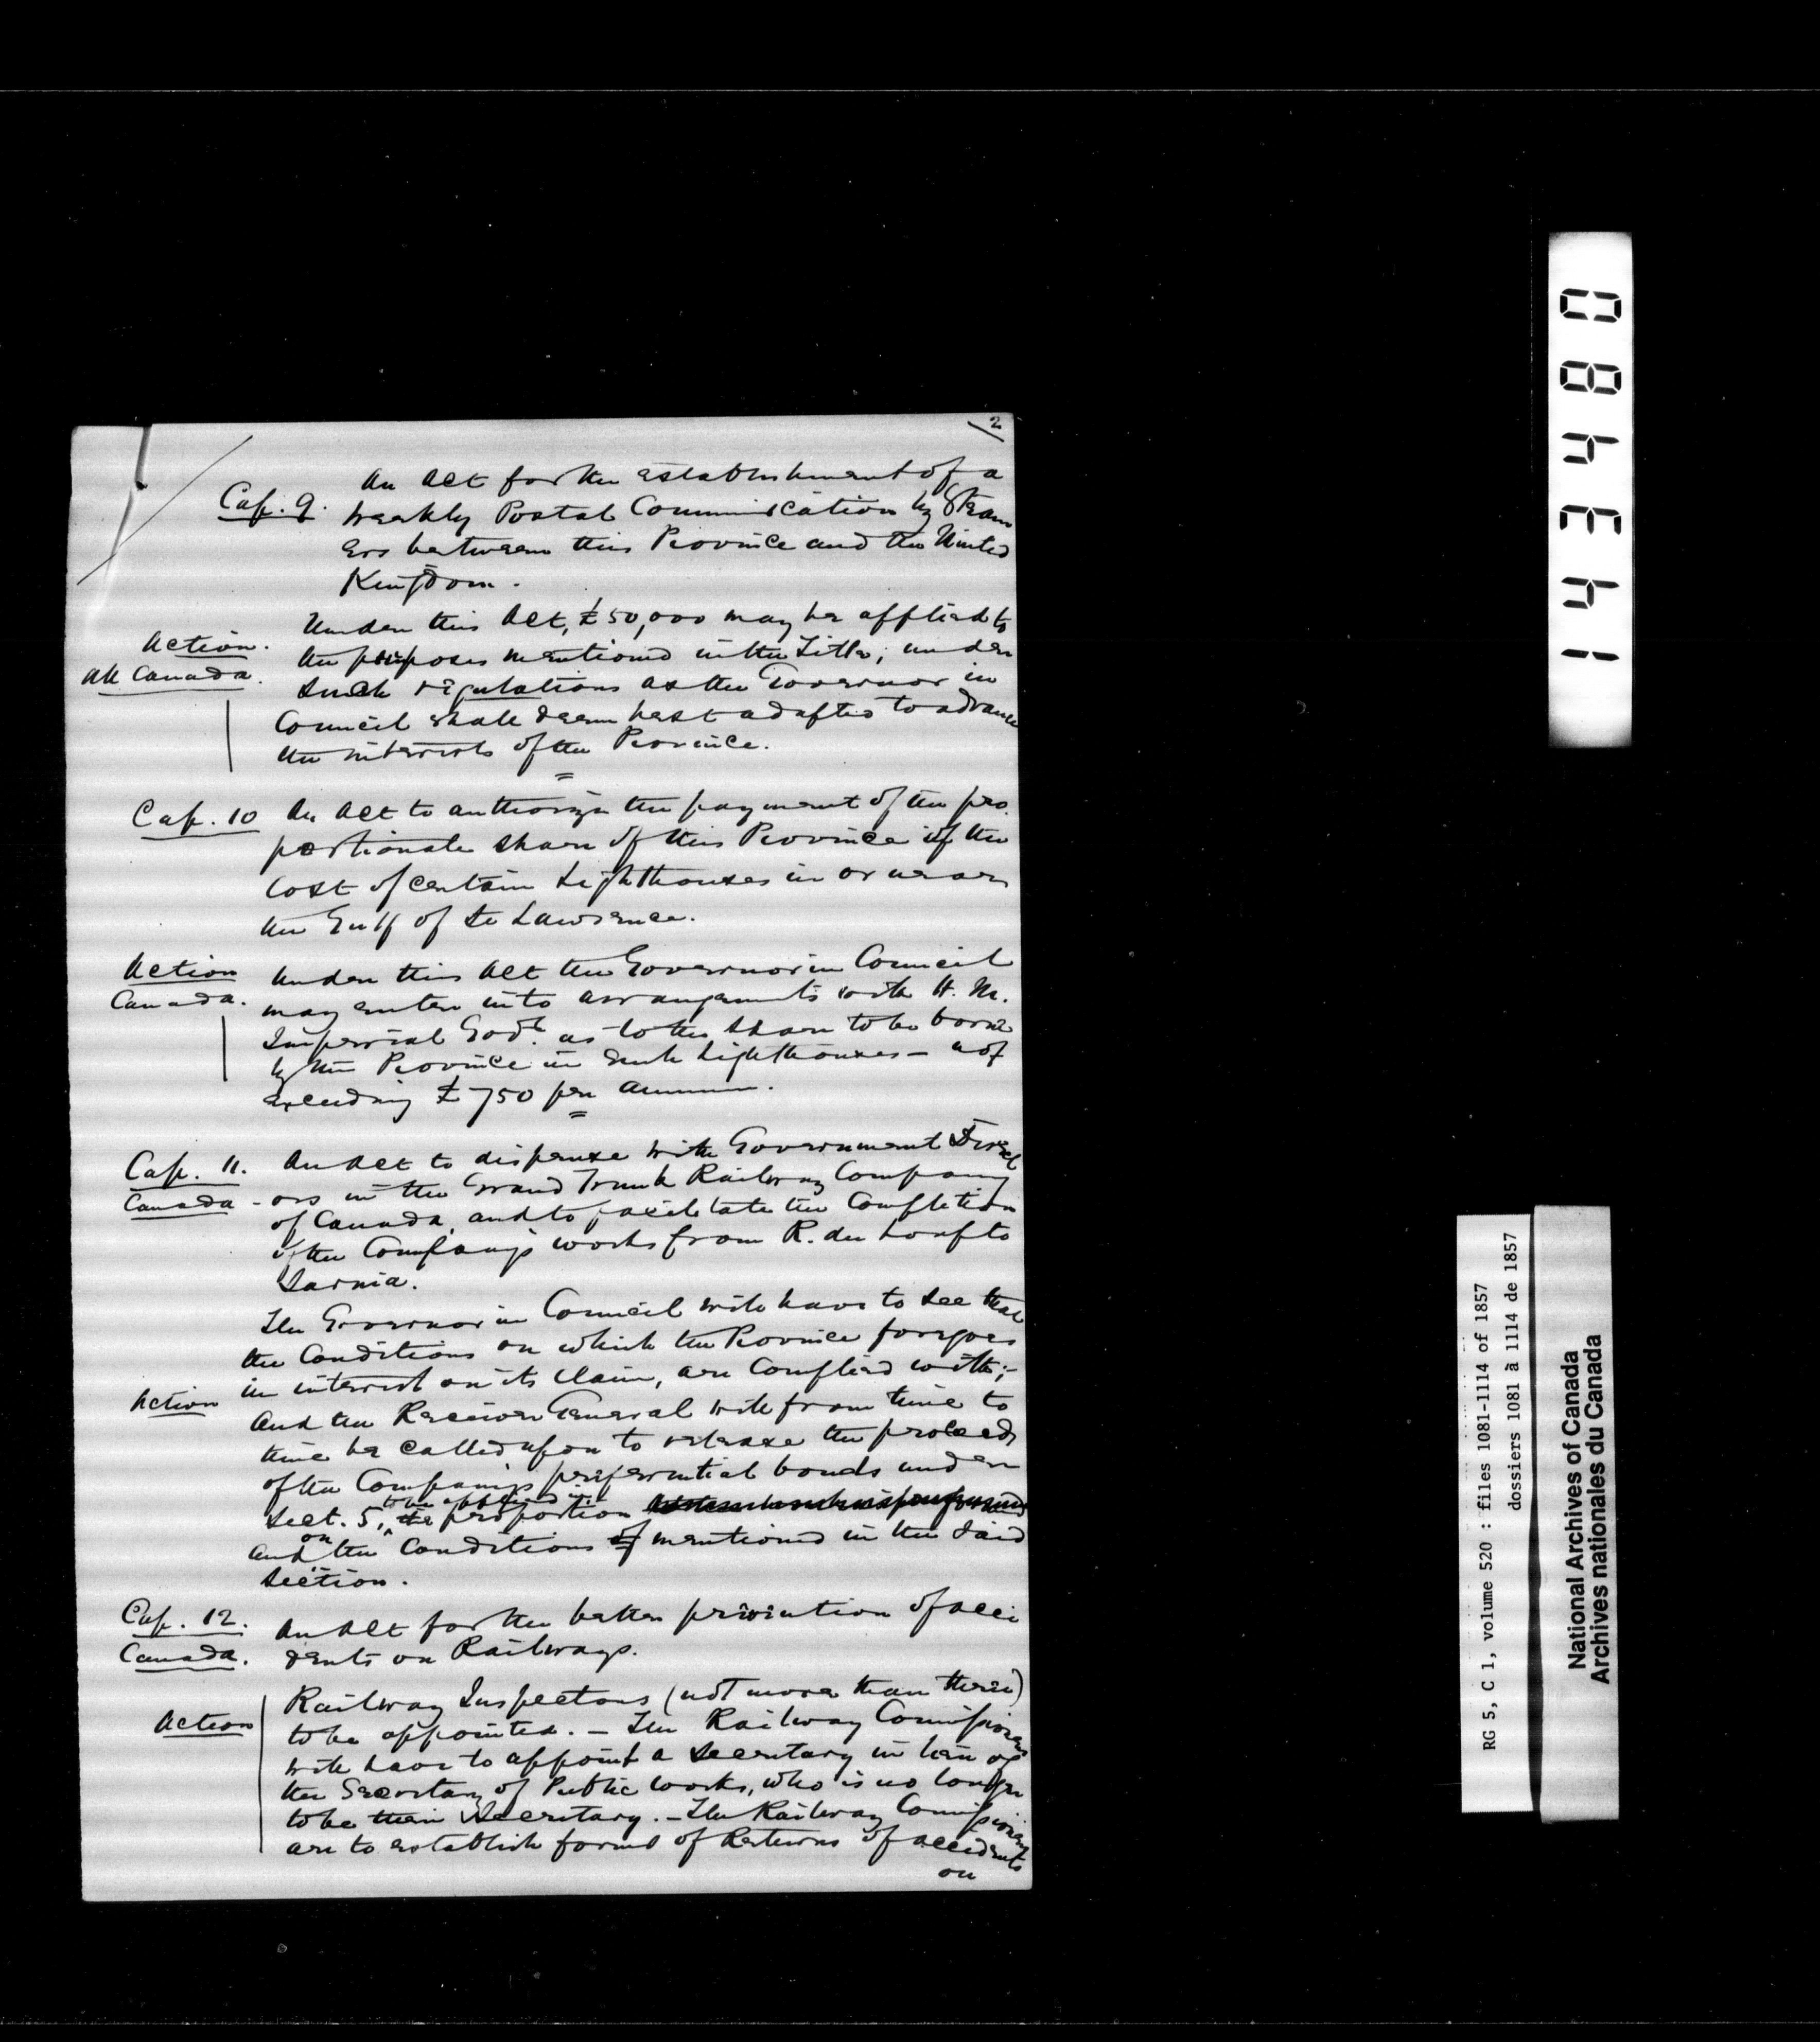 2
Cap. 9. An Act for the establishment of a
weekly Postal Communication by Steam
ers between this Province and the United
Kingdom.
Action.
All Canada.
Under this Act, £50,000 may be applied to
the purposes mentioned in the Title; under
such regulations as the Governor in
Council shall deem best adapted to advance
the interests of the Province.
Cap. 10 An Act to authorize the payment of the pro
portionate share of this Province of the
Cost of certain Lighthouses in or near
the Gulf of St Lawrence.
Action
Canada.
Under this Act the Governor in Council
may enter into arrangements with H. M.
Imperial Govt. as to the share to be borne
by the Province in such lighthouses – not
exceeding £750 per annum.
Cap. 11. An Act to dispense with Government Direct
Canada - ors in the Grand Trunk Railway Company
of Canada, and to facilitate the Completion
of the Company's works from R. du Loup to
Sarnia.
The Governor in Council will have to see that
the Conditions on which the Province foregoes
in interest on its claim, are Complied with;-
Action
And the Receiver General will from time to
time be called upon to release the proceeds
of the Company's preferential bonds under
Sect. 5, to be applied in the proportion
and on the Conditions of mentioned in the said
Section.
Cap. 12. An Act for the better prevention of acci
Canada. dents on Railways.
Action
Railway Inspectors (not more than three)
to be appointed. – The Railway Commissioners
will have to appoint a Secretary in lieu of
the Secretary of Public Works, who is no longer
to be their Secretary. – The Railway Commissioners
are to establish forms of Returns of accidents
on
084341
RG 5, C 1, volume 520 : files 1081-1114 of 1857
dossiers 1081 à 1114 de 1857
National Archives of Canada
Archives nationales du Canada